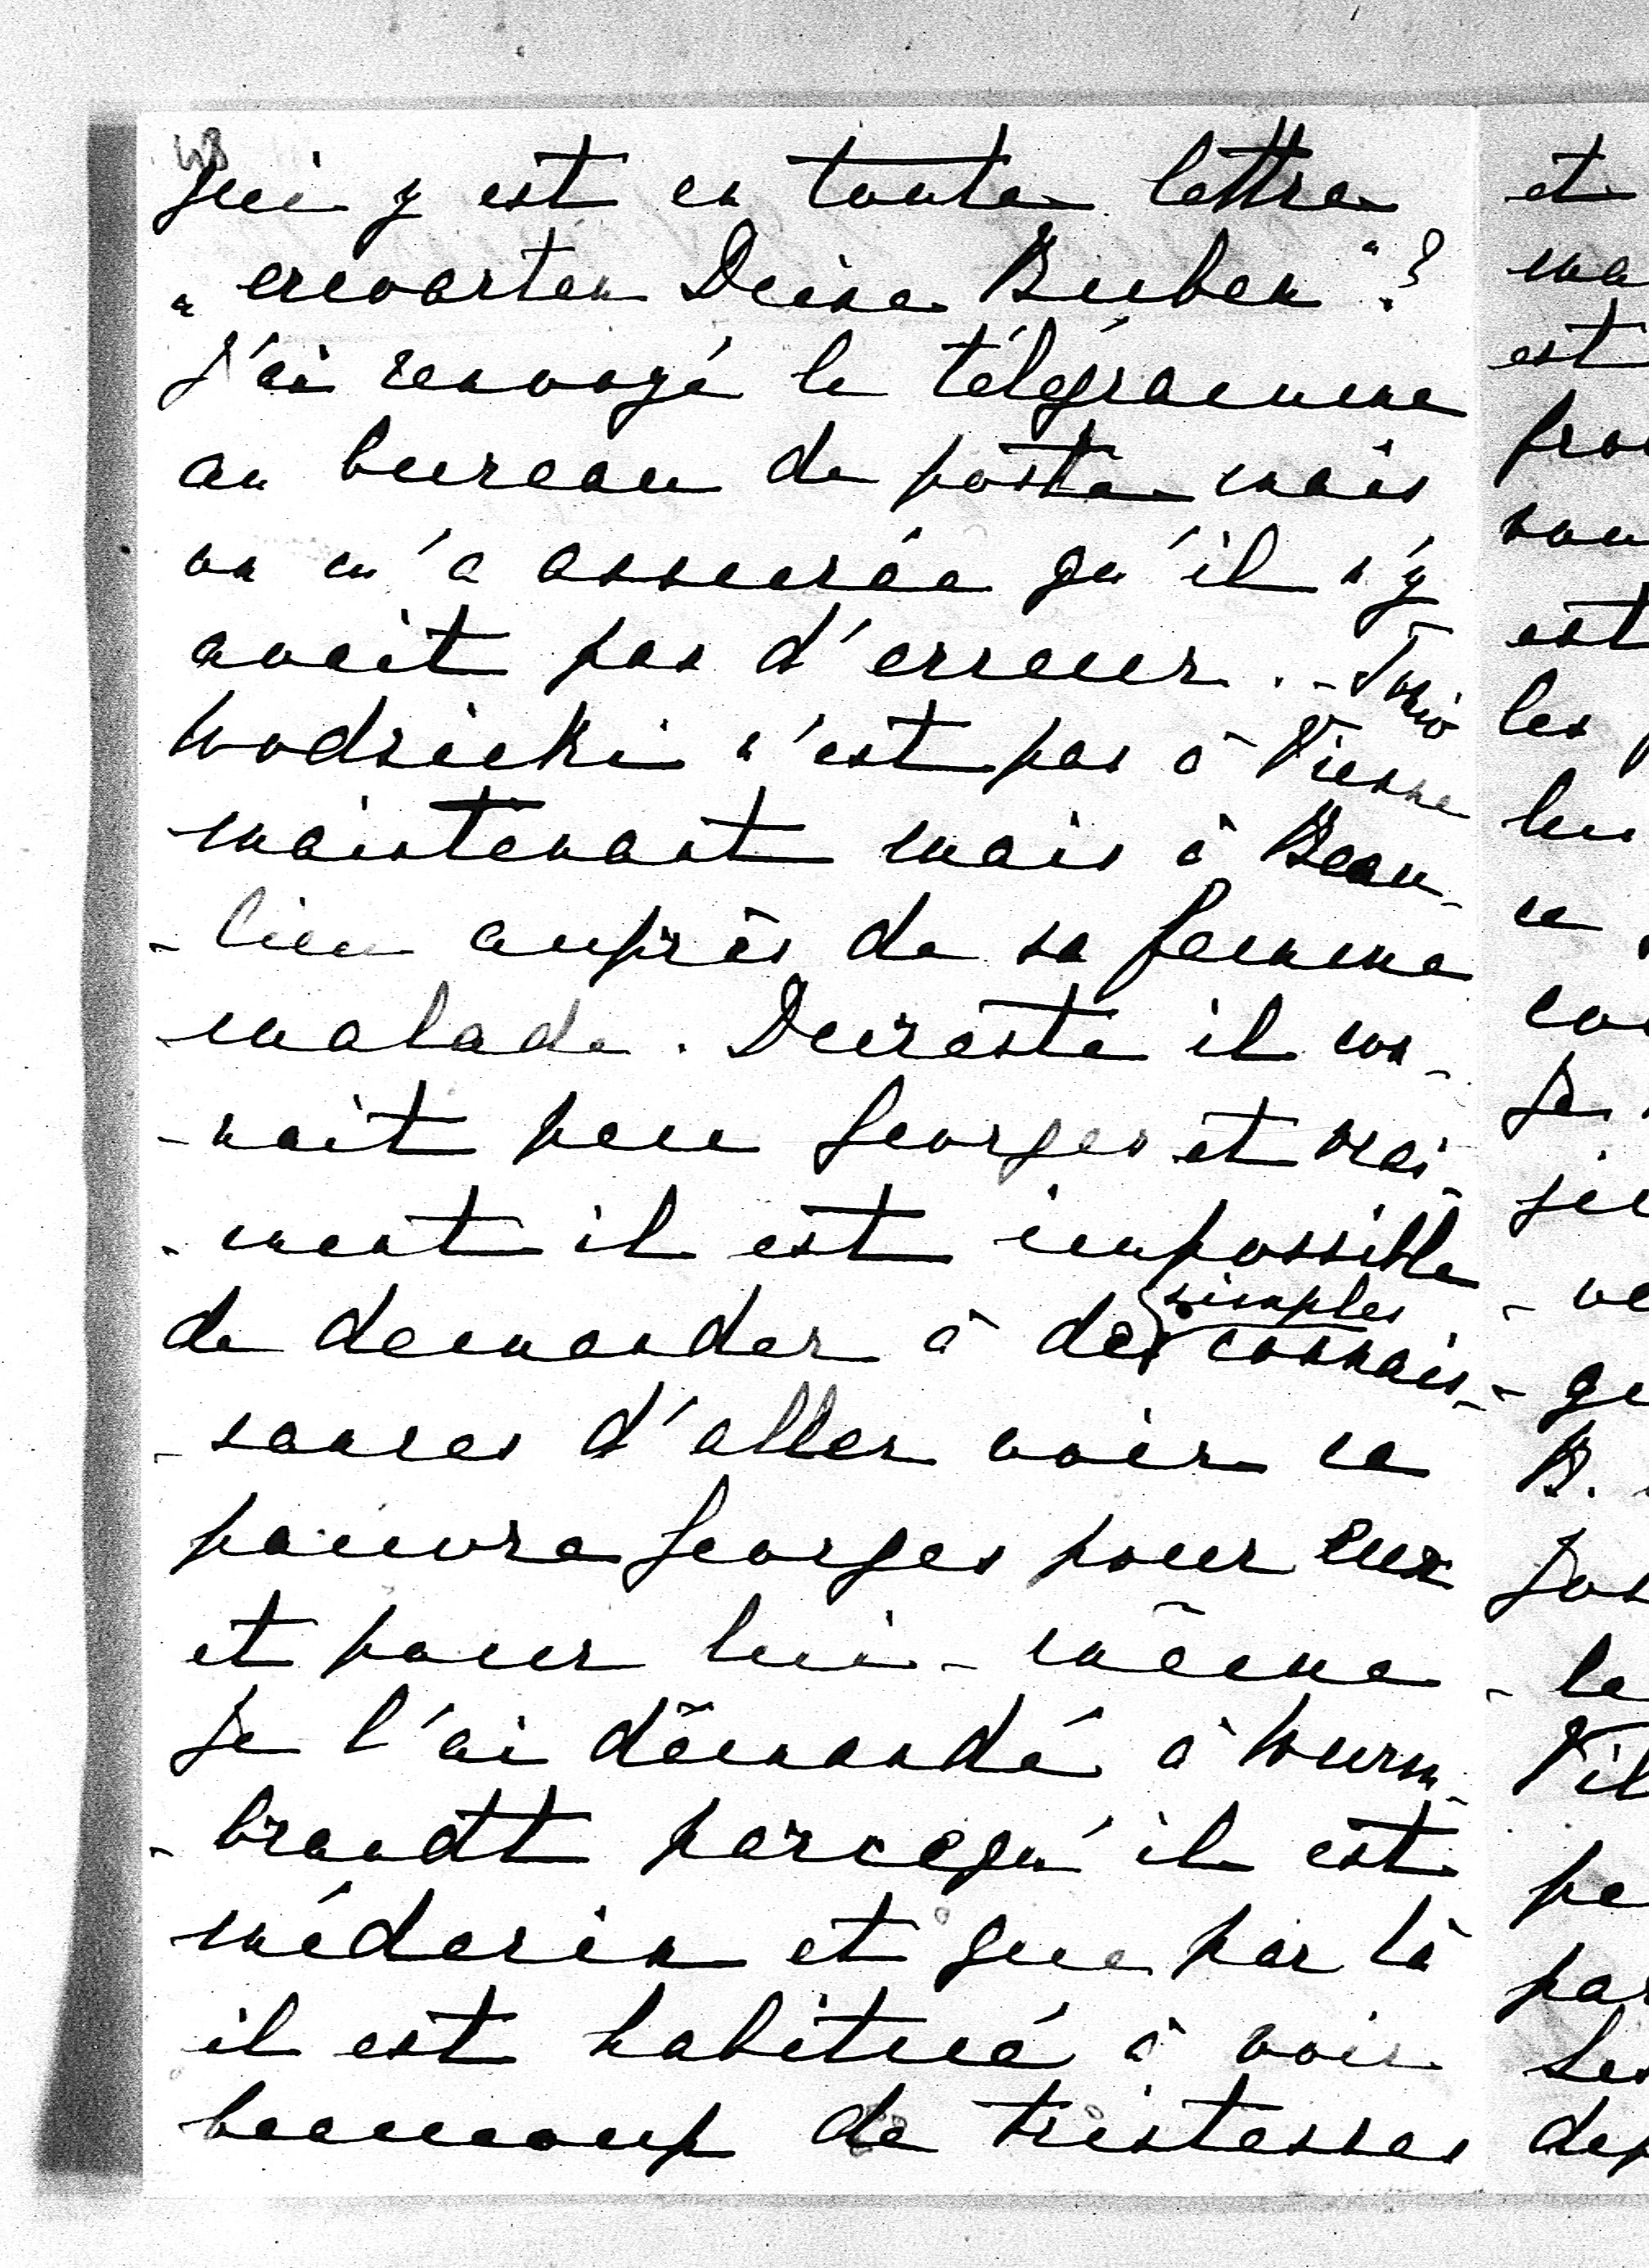 48
qui y est en toute lettre
„erwarten Deine Buben"?
J'ai renvoyé le télégramme
au bureau de poste mais
on m'a assurée qu'il n'y
avait pas d'erreur. -
Wodzicki n'est pas à Vienne
maintenant mais à Beau-
-lieu auprès de sa femme
malade. Dureste il con-
-nait peu Georges et vrai-
-ment il est impossible
simples
de demander à des connais-
-sances d'aller voir ce
pauvre Georges pour eux
et pour lui-même
Je l'ai demandé à Wurm-
-brandt parcequ'il est
médecin et que par là
il est habitué à voir
beaucoup de tristesses
et
est
est
les
B.